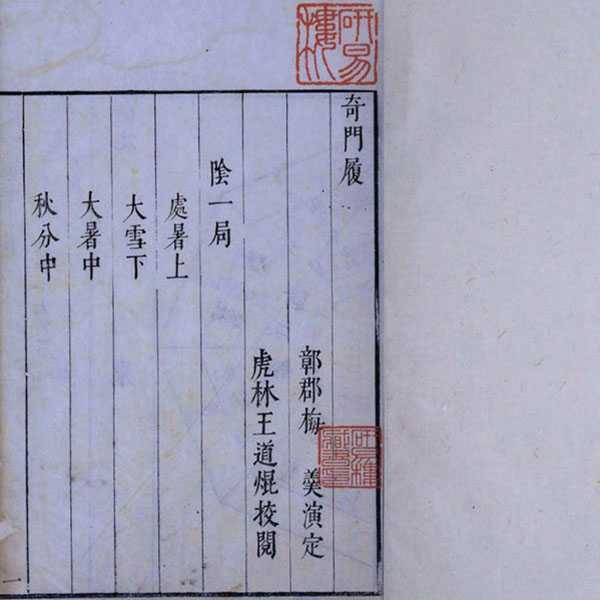 研易樓
奇門履
鄣郡梅 羹演定
虎林王道焜挍閱
陰一局
處暑上
大雪下
大暑中
秋分中
一